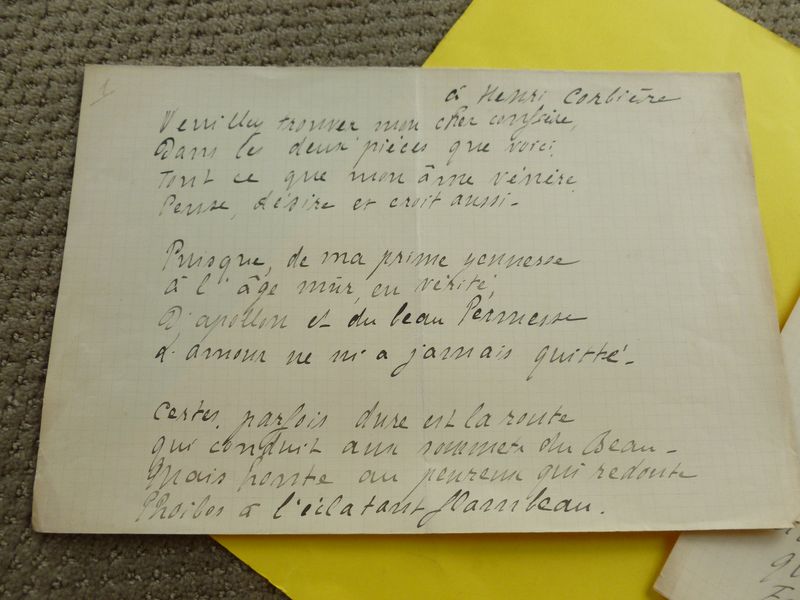 1
à Henri Corbière
Veuillez trouver mon cher confrère,
Dans les deux pièces que voici,
Tout ce que mon âme vénère,
Pense, désire et croit aussi -
Puisque, de ma prime jeunesse
à l'âge mûr, en vérité,
D'apollon et du beau Permesse
L'amour ne m'a jamais quitté -
Certes, parfois dure est la route
qui conduit aux sommets du Beau -
Mais honte au peureux qui redoute
Phoibos à l'éclatant flambeau.